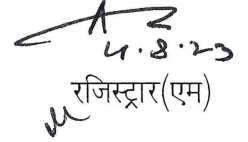 4.8.23
रजिस्ट्रार(एम)